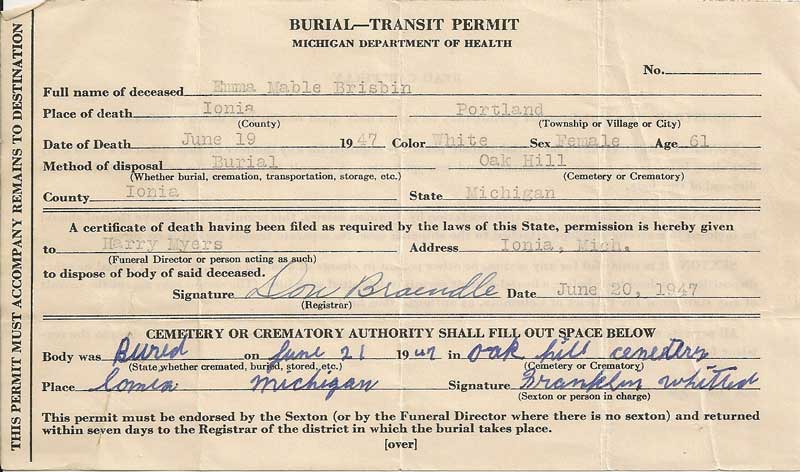 BURIAL—TRANSIT PERMIT
MICHIGAN DEPARTMENT OF HEALTH
No.
Full name of deceased Emma Mable Brisbin
Place of death Ionia Portland
(County) (Township or Village or City)
Date of Death June 19 1947 Color White Sex Female Age 61
Method of disposal Burial Oak Hill
(Whether burial, cremation, transportation, storage, etc.) (Cemetery or Crematory)
County Ionia State Michigan
A certificate of death having been filed as required by the laws of this State, permission is hereby given
to Harry Myers Address Ionia, Mich.
(Funeral Director or person acting as such)
to dispose of body of said deceased.
Signature Don Braendle Date June 20, 1947
(Registrar)
CEMETERY OR CREMATORY AUTHORITY SHALL FILL OUT SPACE BELOW
Body was Buried on June 21 1947 in Oak hill cemestery
(State whether cremated, buried, stored, etc.) (Cemetery or Crematory)
Place Michigan Signature Franklin Whitted
(Sexton or person in charge)
This permit must be endorsed by the Sexton (or by the Funeral Director where there is no sexton) and returned
within seven days to the Registrar of the district in which the burial takes place.
[over]
THIS PERMIT MUST ACCOMPANY REMAINS TO DESTINATION